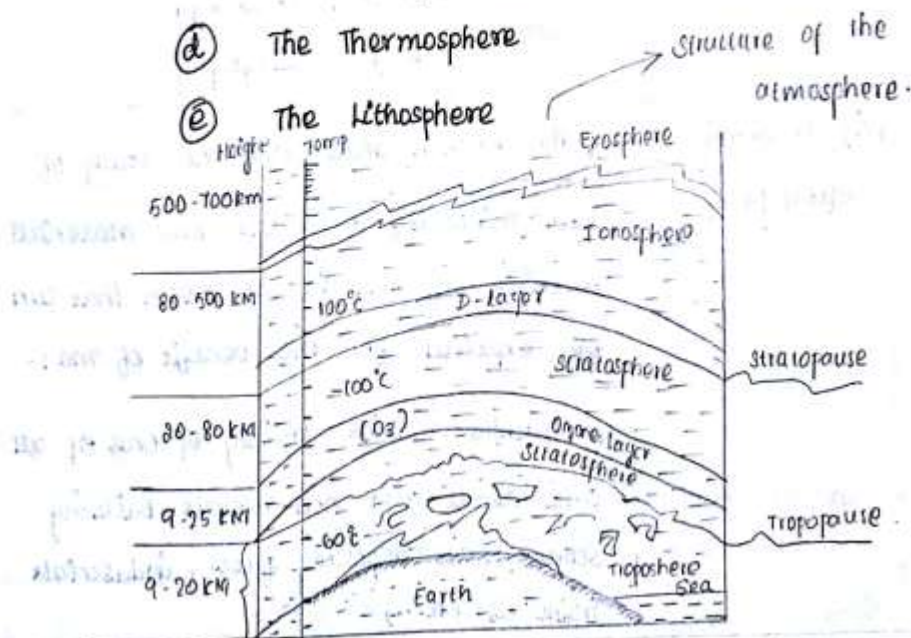 d The Thermosphere
Structure of the
atmosphere.
e The Lithosphere
Height
Temp
Exosphere
500-700km
Ionosphere
80-500 KM
100°C
D-layer
Stratosphere
Stratopause
-100°C
20-80KM
(O3)
Ozone layer
Stratosphere
9-25 KM
Tropopause.
-60°C
Troposhere
9-20KM
Sea
Earth